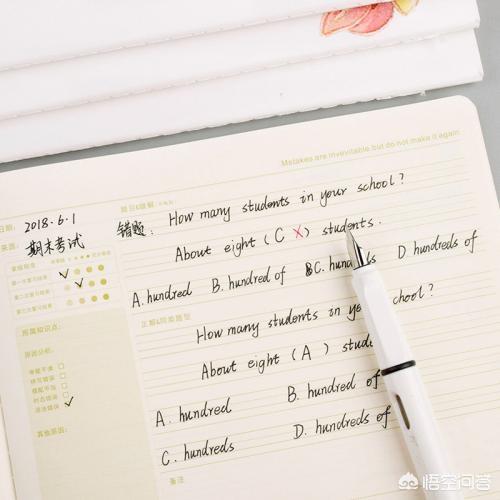 Mistakes are inevitable but do not make it again
日期: 2018.6.1
来源: 期末考试
错题: How many students in your school?
About eight ( C × ) students.
A. hundred B. hundred of C. hundreds D hundreds of
How many students in your school?
About eight ( A ) stude
A. hundred B. hundred of
C. hundreds D. hundreds of
所属知识点:
原因分析:
其他原因:
正解&同类题型
备注
悟空问答